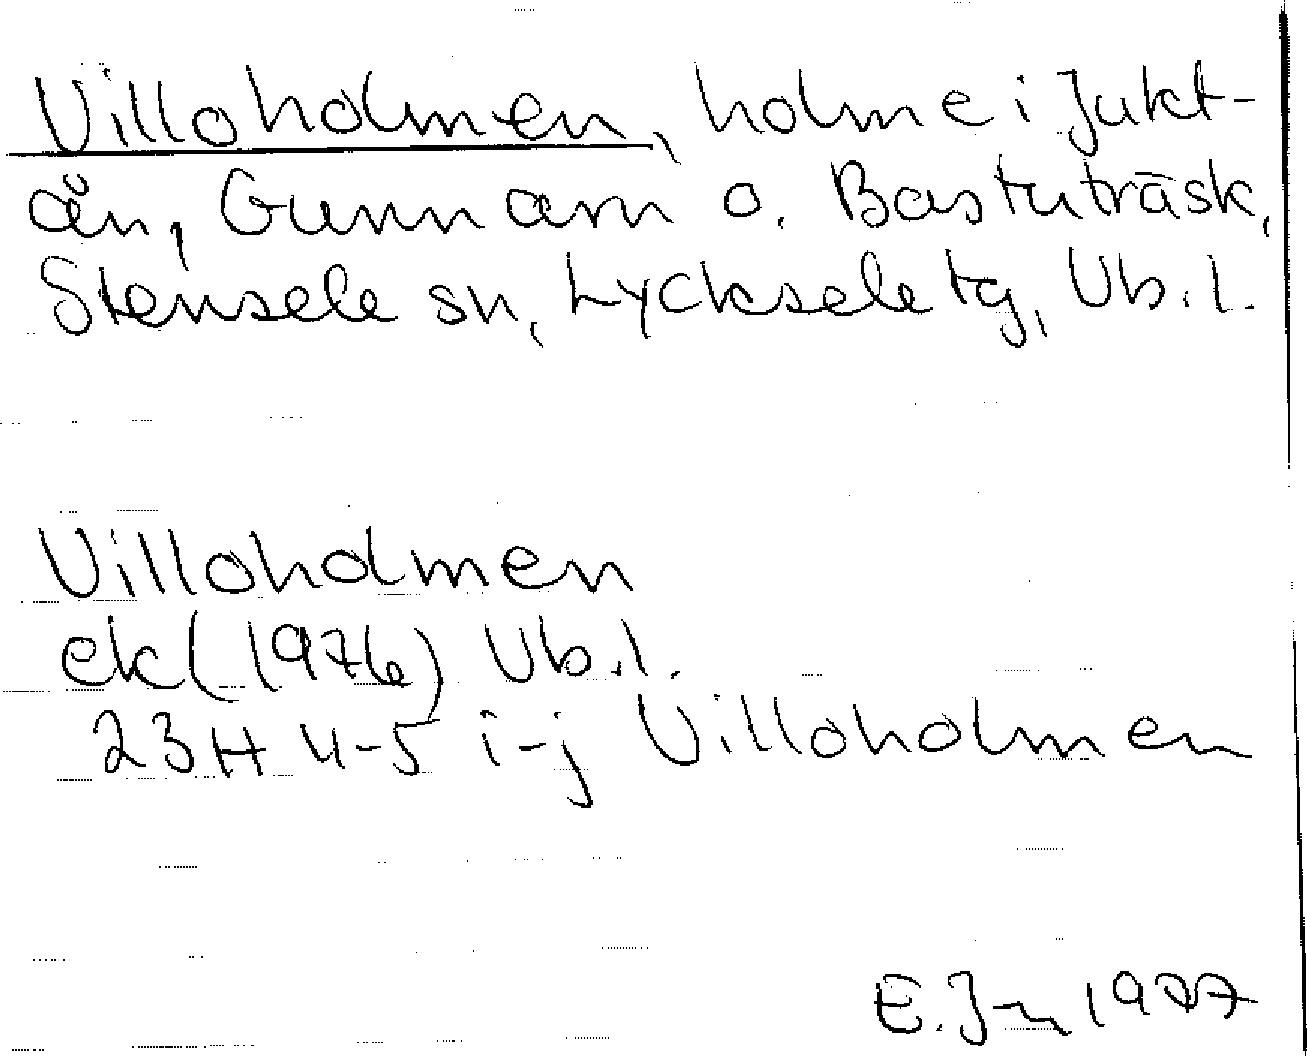 Villoholmen, holme i Jukt-
ån, Gunnarn o. Bastuträsk,
Stensele sn, Lycksele tg, Vb. l.
Villoholmen
ek (1976) Vb. l.
23H 4-5 i-j Villoholmen
E. 1977